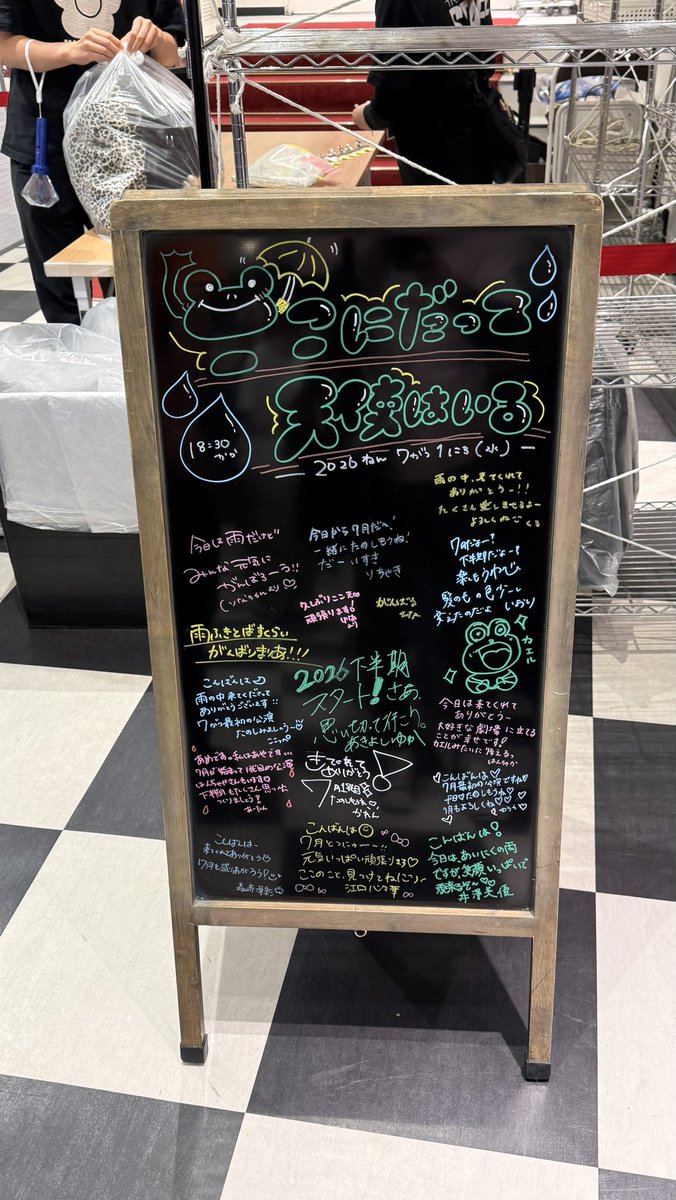 ここにだって
天使はいる
18:30
2026ねん 7がつ 1にち(水)
雨の中、来てくれて
ありがとうー!!
たくさん楽しませるよー
今日は雨だけど
みんな元気に
がんばるーる!!
今日から7月だヘ!
一緒にたのしもうね!
だーいすき
りちゃき
7月だよー?
下半期だよー?
楽しもうねぴ
髪のもの色グレー
変えたのだよ いおり
久しぶりここ天!
頑張ります!
がんばる
雨ふきとばすくらい
がんばりまりあ!!!
カエル
2026下半期
スタート!さあ、
思い切って行こう。
あきよしゆか
こんばんは
雨の中来てくださって
ありがとうございます!!
7がつ最初の公演
たのしみましょう〜
今日は来てくれて
ありがとう〜
大好きな劇場に立てる
ことが幸せです!
カエルみたいに跳えるっ
ほんわか
あめですね。私はあやです
7月が始まって1発目の公演
下半期もたくさん思い出
つくりましょう?
あーたん
きてくれて
ありがとう
7月1発目
かれん
こんばんは
7月最初の公演ですね
今日たのしもうね
7月もよろしくね
こんばんは〜
来てくれてありがとう
7月も盛りあがろう!
こんばんは
7月とつにゅ〜!!
元気いっぱい頑張りまる
ここのこと、見つけてね(こ〜)
江口心々華
こんばんは!
今日は、あいにくの雨
ですが、笑顔いっぱいで
頑張るぞ〜
井澤美優